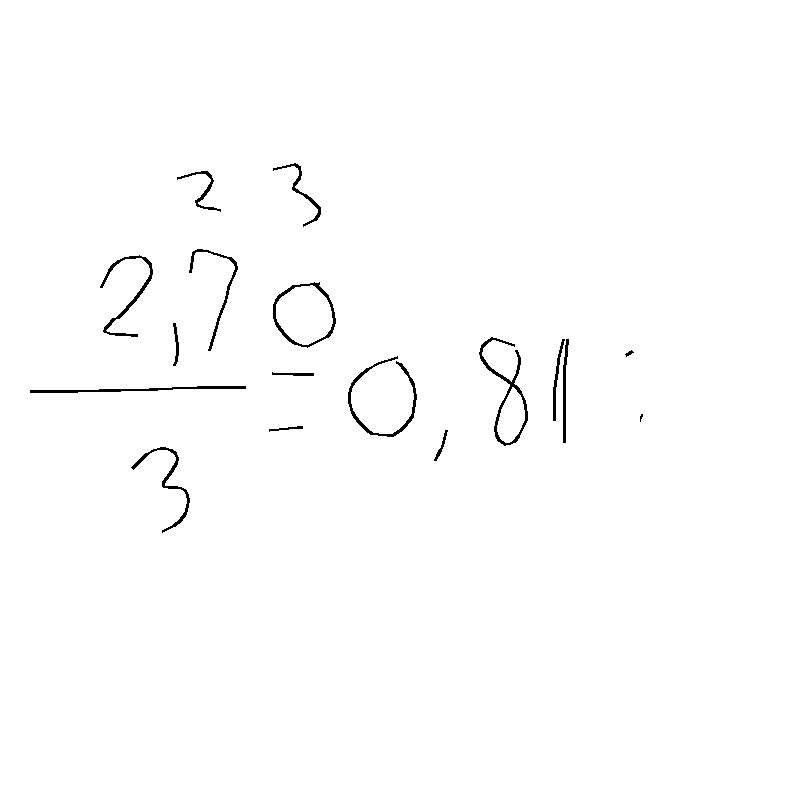 2 3
2,70
3
= 0,81 :